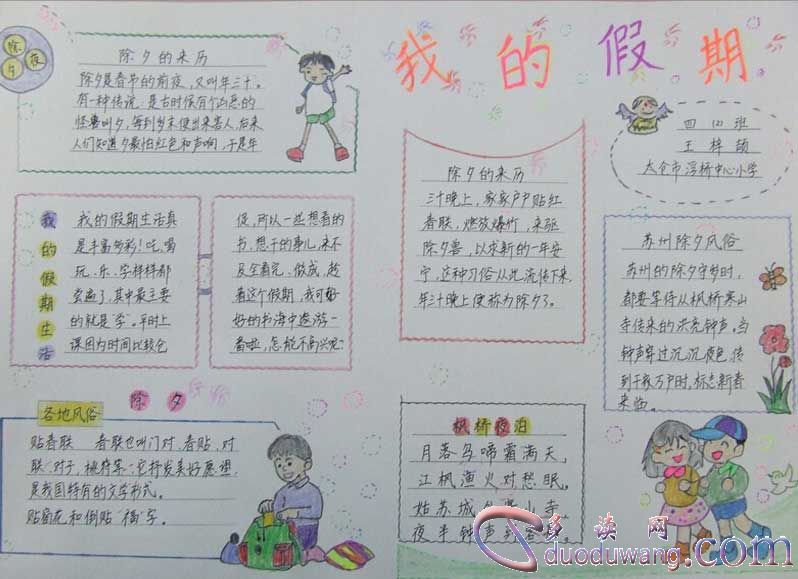 我的假期
四(2)班
王梓颖
太仓市浮桥中心小学
除夕夜
除夕的来历
除夕是春节的前夜，又叫年三十。
有一种传说，是古时候有个凶恶的
怪兽叫夕，每到岁末便出来害人，后来
人们知道夕最怕红色和声响，于是年
除夕的来历
三十晚上，家家户户贴红
春联，燃放爆竹，来驱
除夕兽，以求新的一年安
宁，这种习俗从此流传下来，
年三十晚上便称为除夕了。
我的假期生活
我的假期生活真
是丰富多彩！吃、喝
玩、乐、学样样都
尝遍了，其中最主要
的就是“学”。平时上
课因为时间比较仓
促，所以一些想看的
书，想干的事儿，来不
及全看完、做成，趁
着这个假期，我可好
好的书海中遨游一
番啦，怎能不高兴呢？
苏州除夕风俗
苏州的除夕守岁时，
都要等待从枫桥寒山
寺传来的洪亮钟声。当
钟声穿过沉沉夜色，传
到千家万户时，标志新春
来临。
除夕
各地风俗
贴春联　春联也叫门对、春贴、对
联、对子，桃符等，它抒发美好愿望
是我国特有的文学形式。
贴窗花和倒贴“福”字。
枫桥夜泊
月落乌啼霜满天，
江枫渔火对愁眠。
姑苏城外寒山寺，
夜半钟声到客船。
多读网
duoduwang.com